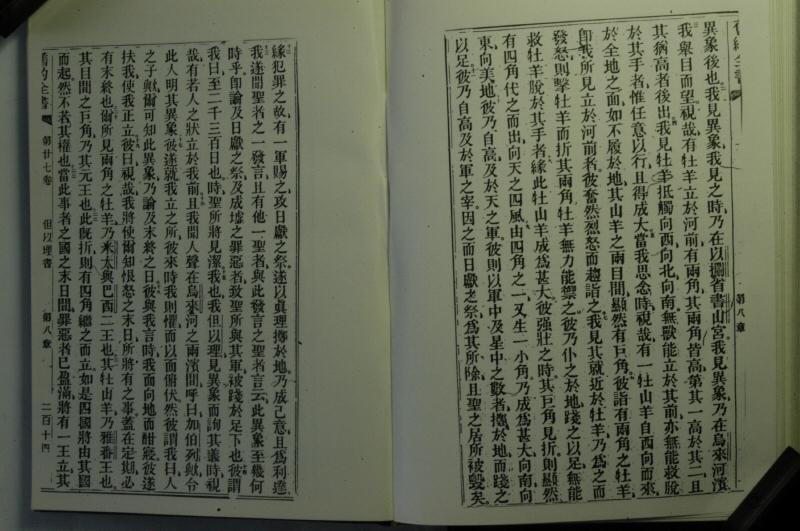 第八章
異象後也我見異象我見之時乃在以攔省書山宮我見異象乃在烏來河濱
我舉目而望視哉有牡羊立於河前有兩角其兩角皆高第其一高於其二且
其猶高者後出我見牡羊抵觸向西向北向南無獸能立於其前亦無能救脫
於其手者惟任意以行且得成大當我思念時視哉有一牡山羊自西向而來
於全地之面如不履於地其山羊之兩目間顯然有巨角彼詣有兩角之牡羊
卽我所見立於河前者彼奮然烈怒而趨詣之我見其就近於牡羊乃為之而
發怒則擊牡羊而折其兩角牡羊無力能禦之彼乃仆之於地踐之以足無能
救牡羊脫於其手者緣此牡山羊成為甚大彼強壯之時其巨角見折則顯然
有四角代之而出向天之四風由四角之一又生一小角乃成為甚大向南向
東向美地彼乃自高及於天之軍彼則以軍中及星中之數者擲於地而踐之
以足彼乃自高及於軍之宰因之而日獻之祭為其所除且聖之居所被毀矣
緣犯罪之故有一軍賜之攻日獻之祭遂以真理擲於地乃成己意且為利達
我遂聞聖者之一發言且有他一聖者與此發言之聖者言云此異象至幾何
時乎卽論及日獻之祭及成墟之罪惡者致聖所與其軍被踐於足下也彼謂
我曰至二千三百日也時聖所將見潔我也我但以理見異象而詢其義時視
哉有若人之狀立於我前且我聞人聲在烏來河之兩濱間呼曰加伯列歟令
此人明其異象彼遂就我立之所彼來時我則懼而以面俯伏然彼謂我曰人
之子歟爾可知此異象乃論及末終之日彼與我言時我面向地而酣寢彼遂
扶我使我正立彼曰視哉我將使爾知恨怒之末日所將有之事蓋在定期必
有末終也爾所見兩角之牡羊乃米太與巴西二王也其牡山羊乃雅番王也
其目間之巨角乃其元王也此旣折則有四角繼之而立如是四國將由其國
而起然不若其權也當此事者之國之末日間罪惡者已盈滿將有一王立其
舊約全書 第廿七卷 但以理書 第八章 二百十四